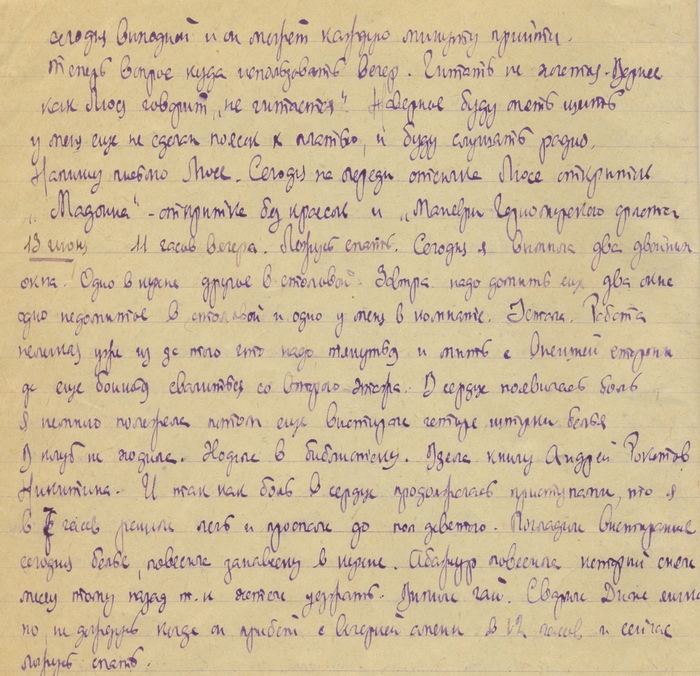 сегодня выходной и он может каждую минуту прийти.
Теперь вопрос куда использовать вечер. Читать не хочется. Вернее
как Люся говорит „не читается". Наверное буду шить
у меня еще не сделан поясок к платью, и буду слушать радио.
Напишу письмо Люсе. Сегодня на Люсе открытки
„Мадонна" - открытка без красок и „Маневры Черноморского флота"
13 июня 11 часов вечера. Ложусь спать. Сегодня я вымыла два двойных
окна. Одно в кухне другое в столовой. Завтра надо домыть еще два окна
одно недомытое в столовой и одно у меня в комнате. Устала. Работа
нелегкая уже из за того что надо тянуться и мыть с внешней стороны
да еще боишься свалиться со второго этажа. В сердце появилась боль
Я немного полежала потом еще выстирала четыре штуки белья
В клуб не ходила. Ходила в библиотеку. Взяла книгу Андрей Рокотов
Никитина. И так как боль в сердце продолжалась приступами, то я
в 7 часов решила лечь и проспала до пол девятого. Погладила выстиранное
сегодня белье, повесила занавеску в кухне. Абажур повесила который сняла
месяц тому назад т.к. хотела убрать. Выпила чай. Сварила Диме
но не дождусь когда он придет с вечерней смены в 12 часов и сейчас
ложусь спать.